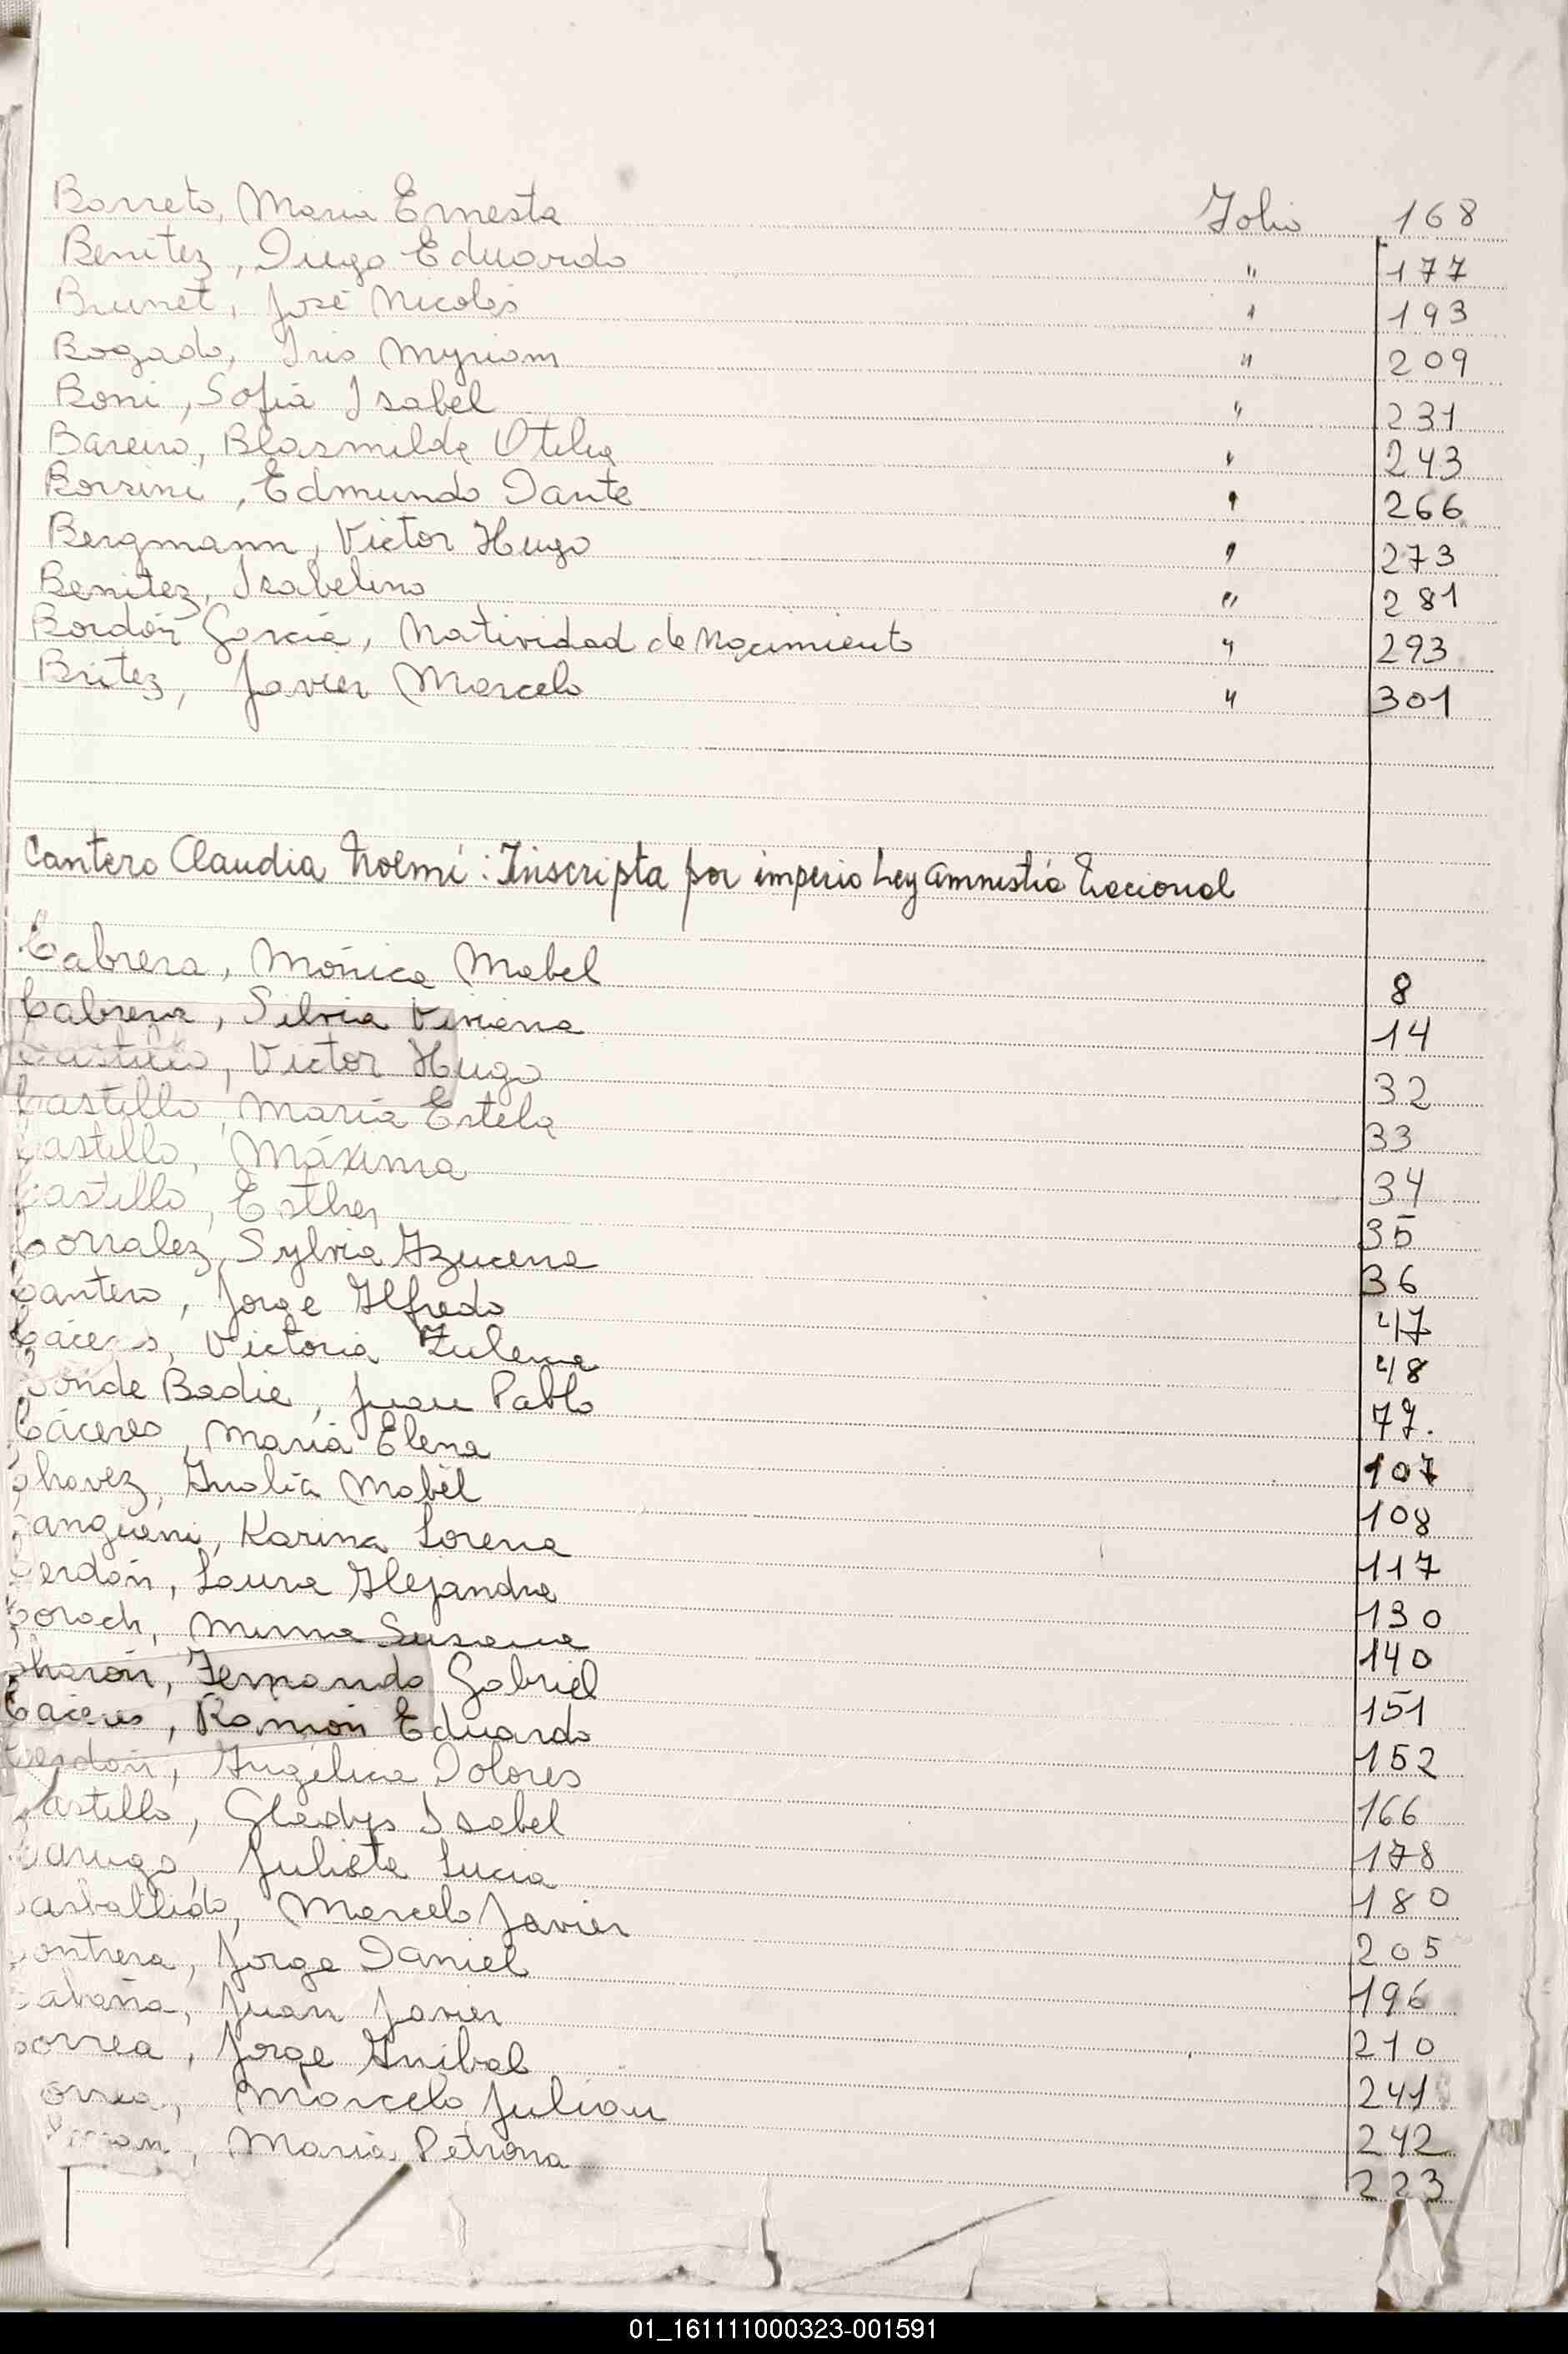 Barreto, Maria Ernesta Folio 168
Benitez, Diego Eduardo " 177
Brunet, José Nicolás " 193
Bogado, Iris Myriam " 209
Boni, Sofia Isabel " 231
Bareiro, Blasmilda Otilia " 243
Borrini, Edmundo Dante " 266
Bergmann, Victor Hugo " 273
Benitez, Isabelino " 281
Bordón García, Natividad de Nacimiento " 293
Britez, Javier Marcelo " 301
Cantero Claudia Noemí: Inscripta por imperio Ley Amnistía Nacional
Cabrera, Mónica Mabel 8
Cabrera, Silvia Viviana 14
Castillo, Victor Hugo 32
Castillo, María Estela 33
Castillo, Máxima 34
Castillo, Esther 35
Corralez, Sylvia Azucena 36
Cantero, Jorge Alfredo 47
Cáceres, Victoria Zulema 48
Conde Badie, Juan Pablo 77.
Cáceres, María Elena 107
Chavez, Analía Mabel 108
Cangiani, Karina Lorena 117
Cerdán, Laura Alejandra 130
Corach, Mirna Susana 140
Charón, Fernando Gabriel 151
Cáceres, Ramón Eduardo 152
Cerdán, Angélica Dolores 166
Castillo, Gladys Isabel 178
Julieta Lucia 180
Carballido, Marcelo Javier 205
Contrera, Jorge Daniel 196
Cabaña, Juan Javier 210
Correa, Jorge Anibal 241
Correa, Marcelo Julian 242
María Petrona 223
01_161111000323-001591